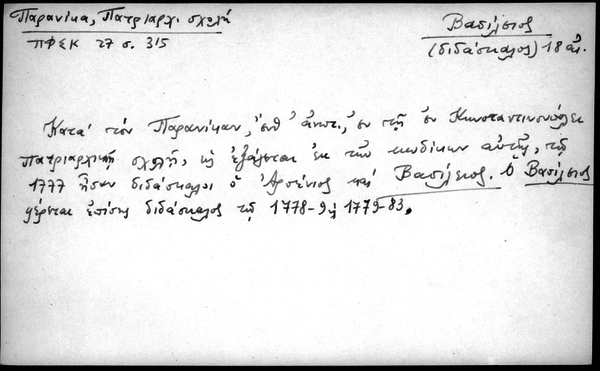 Παρανίκα, Πατριαρχ. σχολή
ΠΦΣΚ 27 σ. 315
Βασίλειος
(διδάσκαλος) 18 αἰ.
Κατὰ τὸν Παρανίκαν, ἔνθ' ἀνωτ., ἐν τῇ ἐν Κωνσταντινουπόλει
πατριαρχικῇ σχολῇ, ὡς ἐξάγεται ἐκ τῶν κωδίκων αὐτῆς, τῷ
1777 ἦσαν διδάσκαλοι ὁ Ἀρσένιος καὶ Βασίλειος. Ὁ Βασίλειος
φέρεται ἐπίσης διδάσκαλος τῷ 1778-9 ἢ 1779-83.